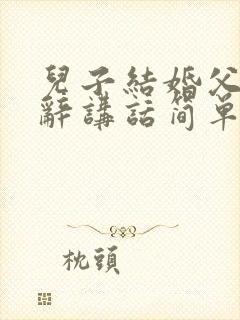 兒子結婚父
辭講話简單
枕頭